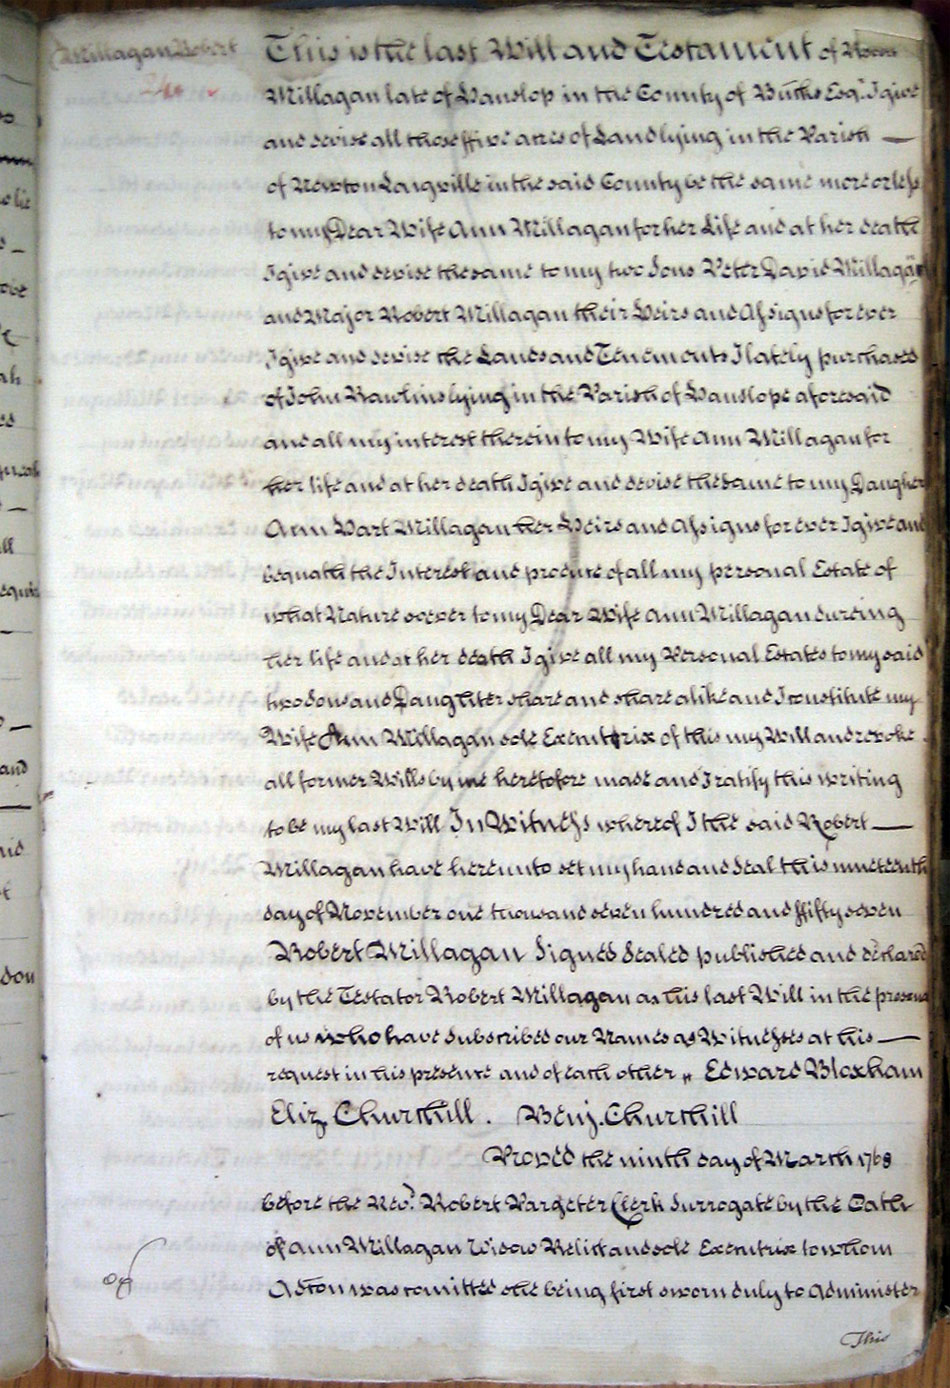 Millagan Robert
This is the last Will and Testament of Robert
Millagan late of Hanslop in the County of Bucks Esqr. I give
and devise all those ffive acres of Land lying in the Parish —
of Newton Longville in the said County be the same more or less
to my Dear Wife Ann Millagan for her Life and at her death
I give and devise the same to my two Sons Peter David Millagan
and Major Robert Millagan their Heirs and Assigns for ever
I give and devise the Lands and Tenements I lately purchased
of John Rawlins lying in the Parish of Hanslope aforesaid
and all my interest therein to my Wife Ann Millagan for
her life and at her death I give and devise the same to my Daughter
Ann Hart Millagan her Heirs and Assigns for ever I give and
bequath the Interest and produce of all my personal Estate of
what Nature soever to my Dear Wife Ann Millagan dureing
her life and at her death I give all my Personal Estates to my said
two Sons and Daughter share and share alike and I constitute my
Wife Ann Millagan sole Executrix of this my Will and revoke
all former Wills by me heretofore made and I ratify this writing
to be my last Will In Witness whereof I the said Robert —
Millagan have hereunto set my hand and Seal this nineteenth
day of November one thousand seven hundred and ffifty seven
Robert Millagan Signed Sealed published and declared
by the Testator Robert Millagan as his last Will in the presence
of us who have Subscribed our Names as Witnesses at his —
request in his presence and of each other „ Edward Bloxham
Eliz. Churchill . Benj. Churchill
Proved the ninth day of March 1768
before the Revd. Robert Pargeter Clerk Surrogate by the Oath
of Ann Millagan Widow Relict and sole Executrix to whom
Adton was comitted she being first sworn duly to Administer
This